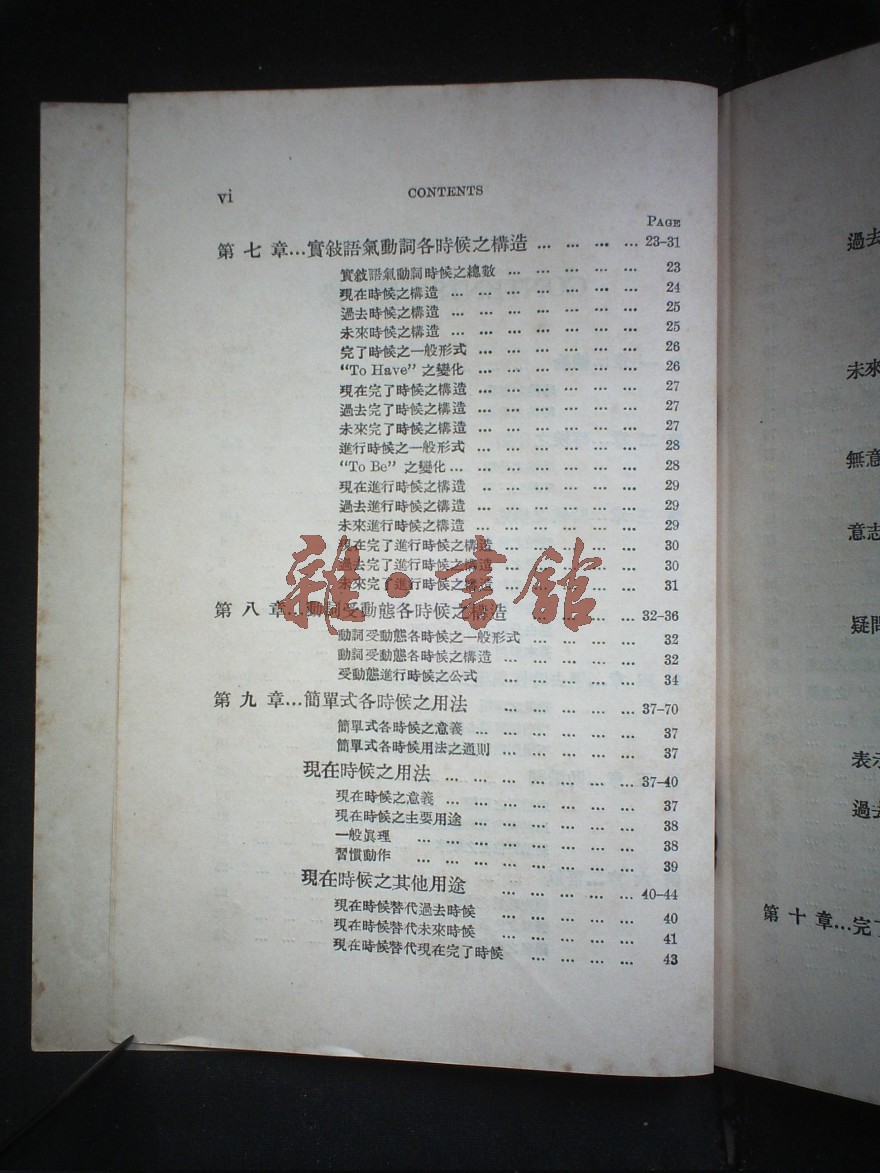 vi CONTENTS
PAGE
第七章...實敍語氣動詞各時候之構造 ... ... ... ... 23-31
實敍語氣動詞時候之總數 ... ... ... ... ... 23
現在時候之構造 ... ... ... ... ... ... 24
過去時候之構造 ... ... ... ... ... ... 25
未來時候之構造 ... ... ... ... ... ... 25
完了時候之一般形式 ... ... ... ... ... ... 26
“To Have” 之變化 ... ... ... ... ... ... 26
現在完了時候之構造 ... ... ... ... ... ... 27
過去完了時候之構造 ... ... ... ... ... ... 27
未來完了時候之構造 ... ... ... ... ... ... 27
進行時候之一般形式 ... ... ... ... ... ... 28
“To Be” 之變化 ... ... ... ... ... ... 28
現在進行時候之構造 .. ... ... ... ... ... 29
過去進行時候之構造 ... ... ... ... ... ... 29
未來進行時候之構造 ... ... ... ... ... ... 29
現在完了進行時候之構造 ... ... ... ... ... 30
過去完了進行時候之構造 ... ... ... ... ... 30
未來完了進行時候之構造 ... ... ... ... ... 31
第八章...動詞受動態各時候之構造 ... ... ... ... 32-36
動詞受動態各時候之一般形式 ... ... ... ... 32
動詞受動態各時候之構造 ... ... ... ... ... 32
受動態進行時候之公式 ... ... ... ... ... 34
第九章...簡單式各時候之用法 ... ... ... ... ... 37-70
簡單式各時候之意義 ... ... ... ... ... ... 37
簡單式各時候用法之通則 ... ... ... ... ... 37
現在時候之用法 ... ... ... ... ... ... 37-40
現在時候之意義 ... ... ... ... ... ... 37
現在時候之主要用途 ... ... ... ... ... ... 38
一般眞理 ... ... ... ... ... ... ... 38
習慣動作 ... ... ... ... ... ... ... 39
現在時候之其他用途 ... ... ... ... ... 40-44
現在時候替代過去時候 ... ... ... ... ... 40
現在時候替代未來時候 ... ... ... ... ... 41
現在時候替代現在完了時候 ... ... ... ... 43
雜·書舘
過去
未來
無意
意志
疑問
表示
過去
第十章...完了